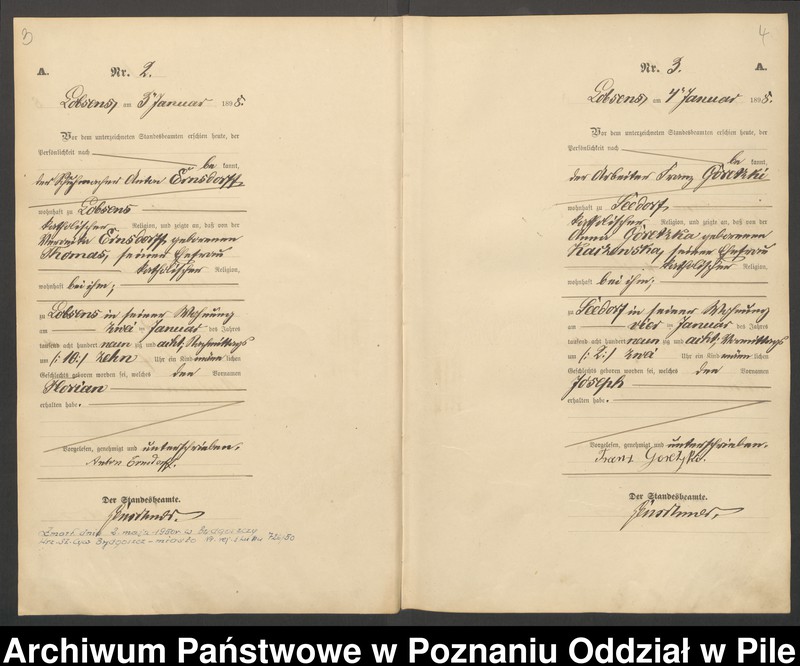 3
A.
Nr. 2.
Lobsens, am 3ten Januar 1898.
Vor dem unterzeichneten Standesbeamten erschien heute, der
Persönlichkeit nach
be kannt,
der Schuhmacher Anton Ernsdorff
wohnhaft zu Lobsens
katholischer Religion, und zeigte an, daß von der
Ernsdorff geborenen
Thomas, seiner Ehefrau
katholischer Religion,
wohnhaft bei ihm;
zu Lobsens in seiner Wohnung
am zwei ten Januar des Jahres
tausend acht hundert neun zig und acht, Nachmittags
um (: 10:) zehn Uhr ein Kind männ lichen
Geschlechts geboren worden sei, welches den Vornamen
Florian
erhalten habe.
Vorgelesen, genehmigt und unterschrieben.
Anton Ernsdorff.
Der Standesbeamte.
Zmarł dnia 2 maja 1980r w Bydgoszczy
Bydgoszcz-miasto
4
Nr. 3.
A.
Lobsens, am 4ten Januar 1898.
Vor dem unterzeichneten Standesbeamten erschien heute, der
Persönlichkeit nach
be kannt,
der Arbeiter Franz Goretzki
wohnhaft zu Seedorf
katholischer Religion, und zeigte an, daß von der
Anna Goretzka geborenen
seiner Ehefrau
katholischer Religion,
wohnhaft bei ihm;
zu Seedorf in seiner Wohnung
am ten Januar des Jahres
tausend acht hundert neun zig und acht, Vormittags
um (: 2:) zwei Uhr ein Kind männ lichen
Geschlechts geboren worden sei, welches den Vornamen
Joseph
erhalten habe.
Vorgelesen, genehmigt und unterschrieben.
Franz Goretzki.
Der Standesbeamte.
Archiwum Państwowe w Poznaniu Oddział w Pile